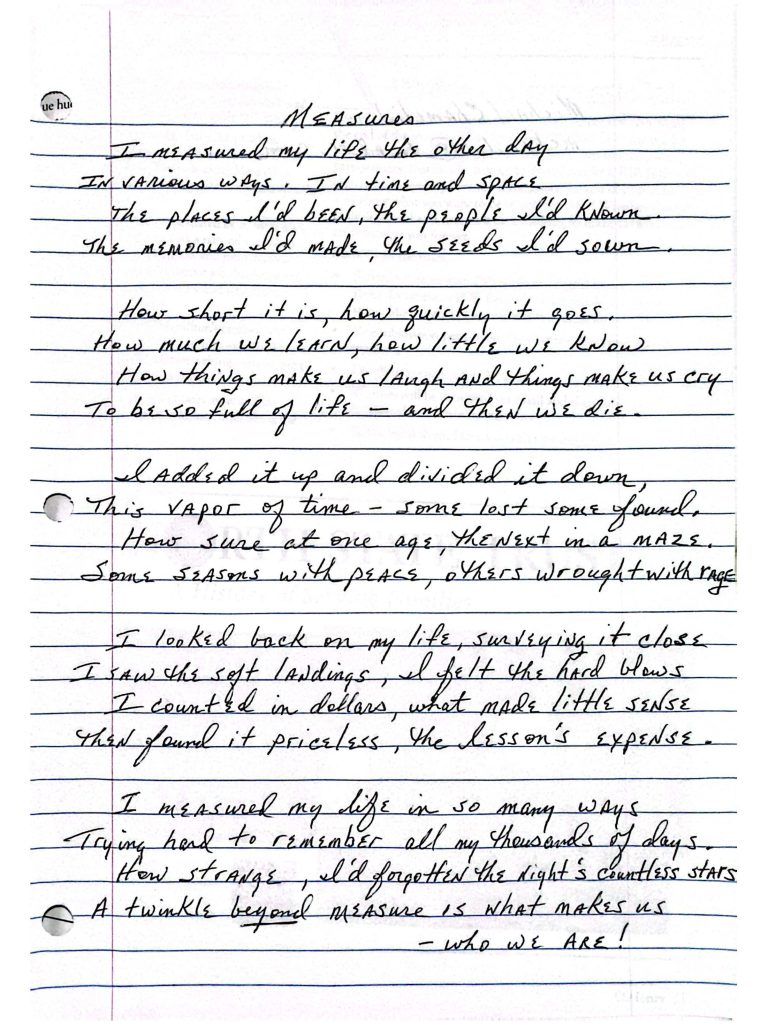 ue hu
Measures
I measured my life the other day
In various ways. In time and space
The places I'd been, the people I'd known.
The memories I'd made, the seeds I'd sown.
How short it is, how quickly it goes.
How much we learn, how little we know
How things make us laugh and things make us cry
To be so full of life – and then we die.
I added it up and divided it down,
This vapor of time – some lost some found.
How sure at one age, the next in a maze.
Some seasons with peace, others wrought with rage
I looked back on my life, surveying it close
I saw the soft landings, I felt the hard blows
I counted in dollars, what made little sense
Then found it priceless, the lesson's expense.
I measured my life in so many ways
Trying hard to remember all my thousands of days.
How strange, I'd forgotten the night's countless stars
A twinkle beyond measure is what makes us
– who we are!